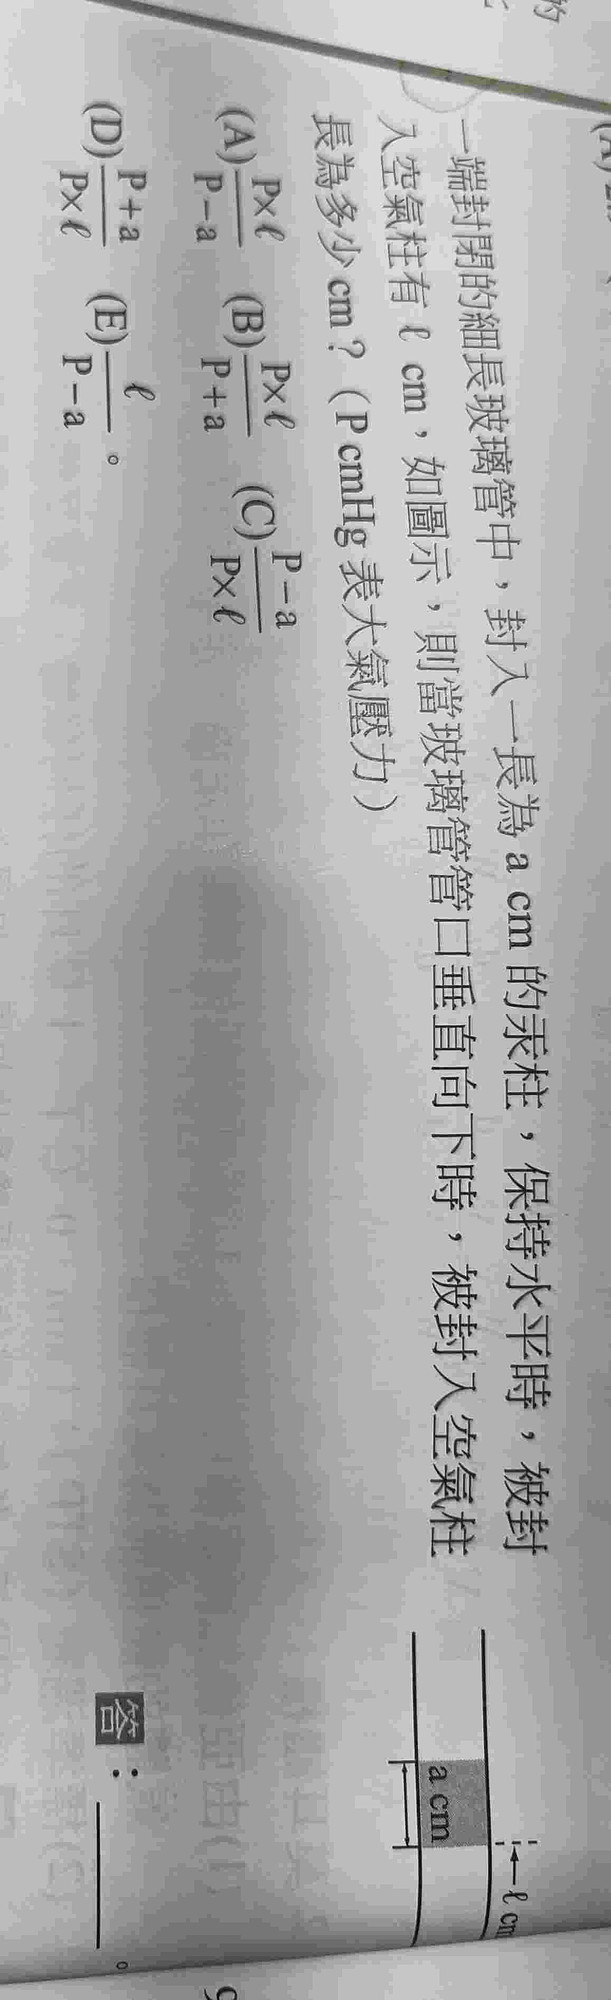 一端封閉的細長玻璃管中，封入一長為 a cm 的汞柱，保持水平時，被封
入空氣柱有 ℓ cm，如圖示，則當玻璃管管口垂直向下時，被封入空氣柱
長為多少 cm？（P cmHg 表大氣壓力）
(A) P×ℓ / P−a (B) P×ℓ / P+a (C) P−a / P×ℓ
(D) P+a / P×ℓ (E) ℓ / P−a 。
ℓ cm
a cm
答：＿＿＿。